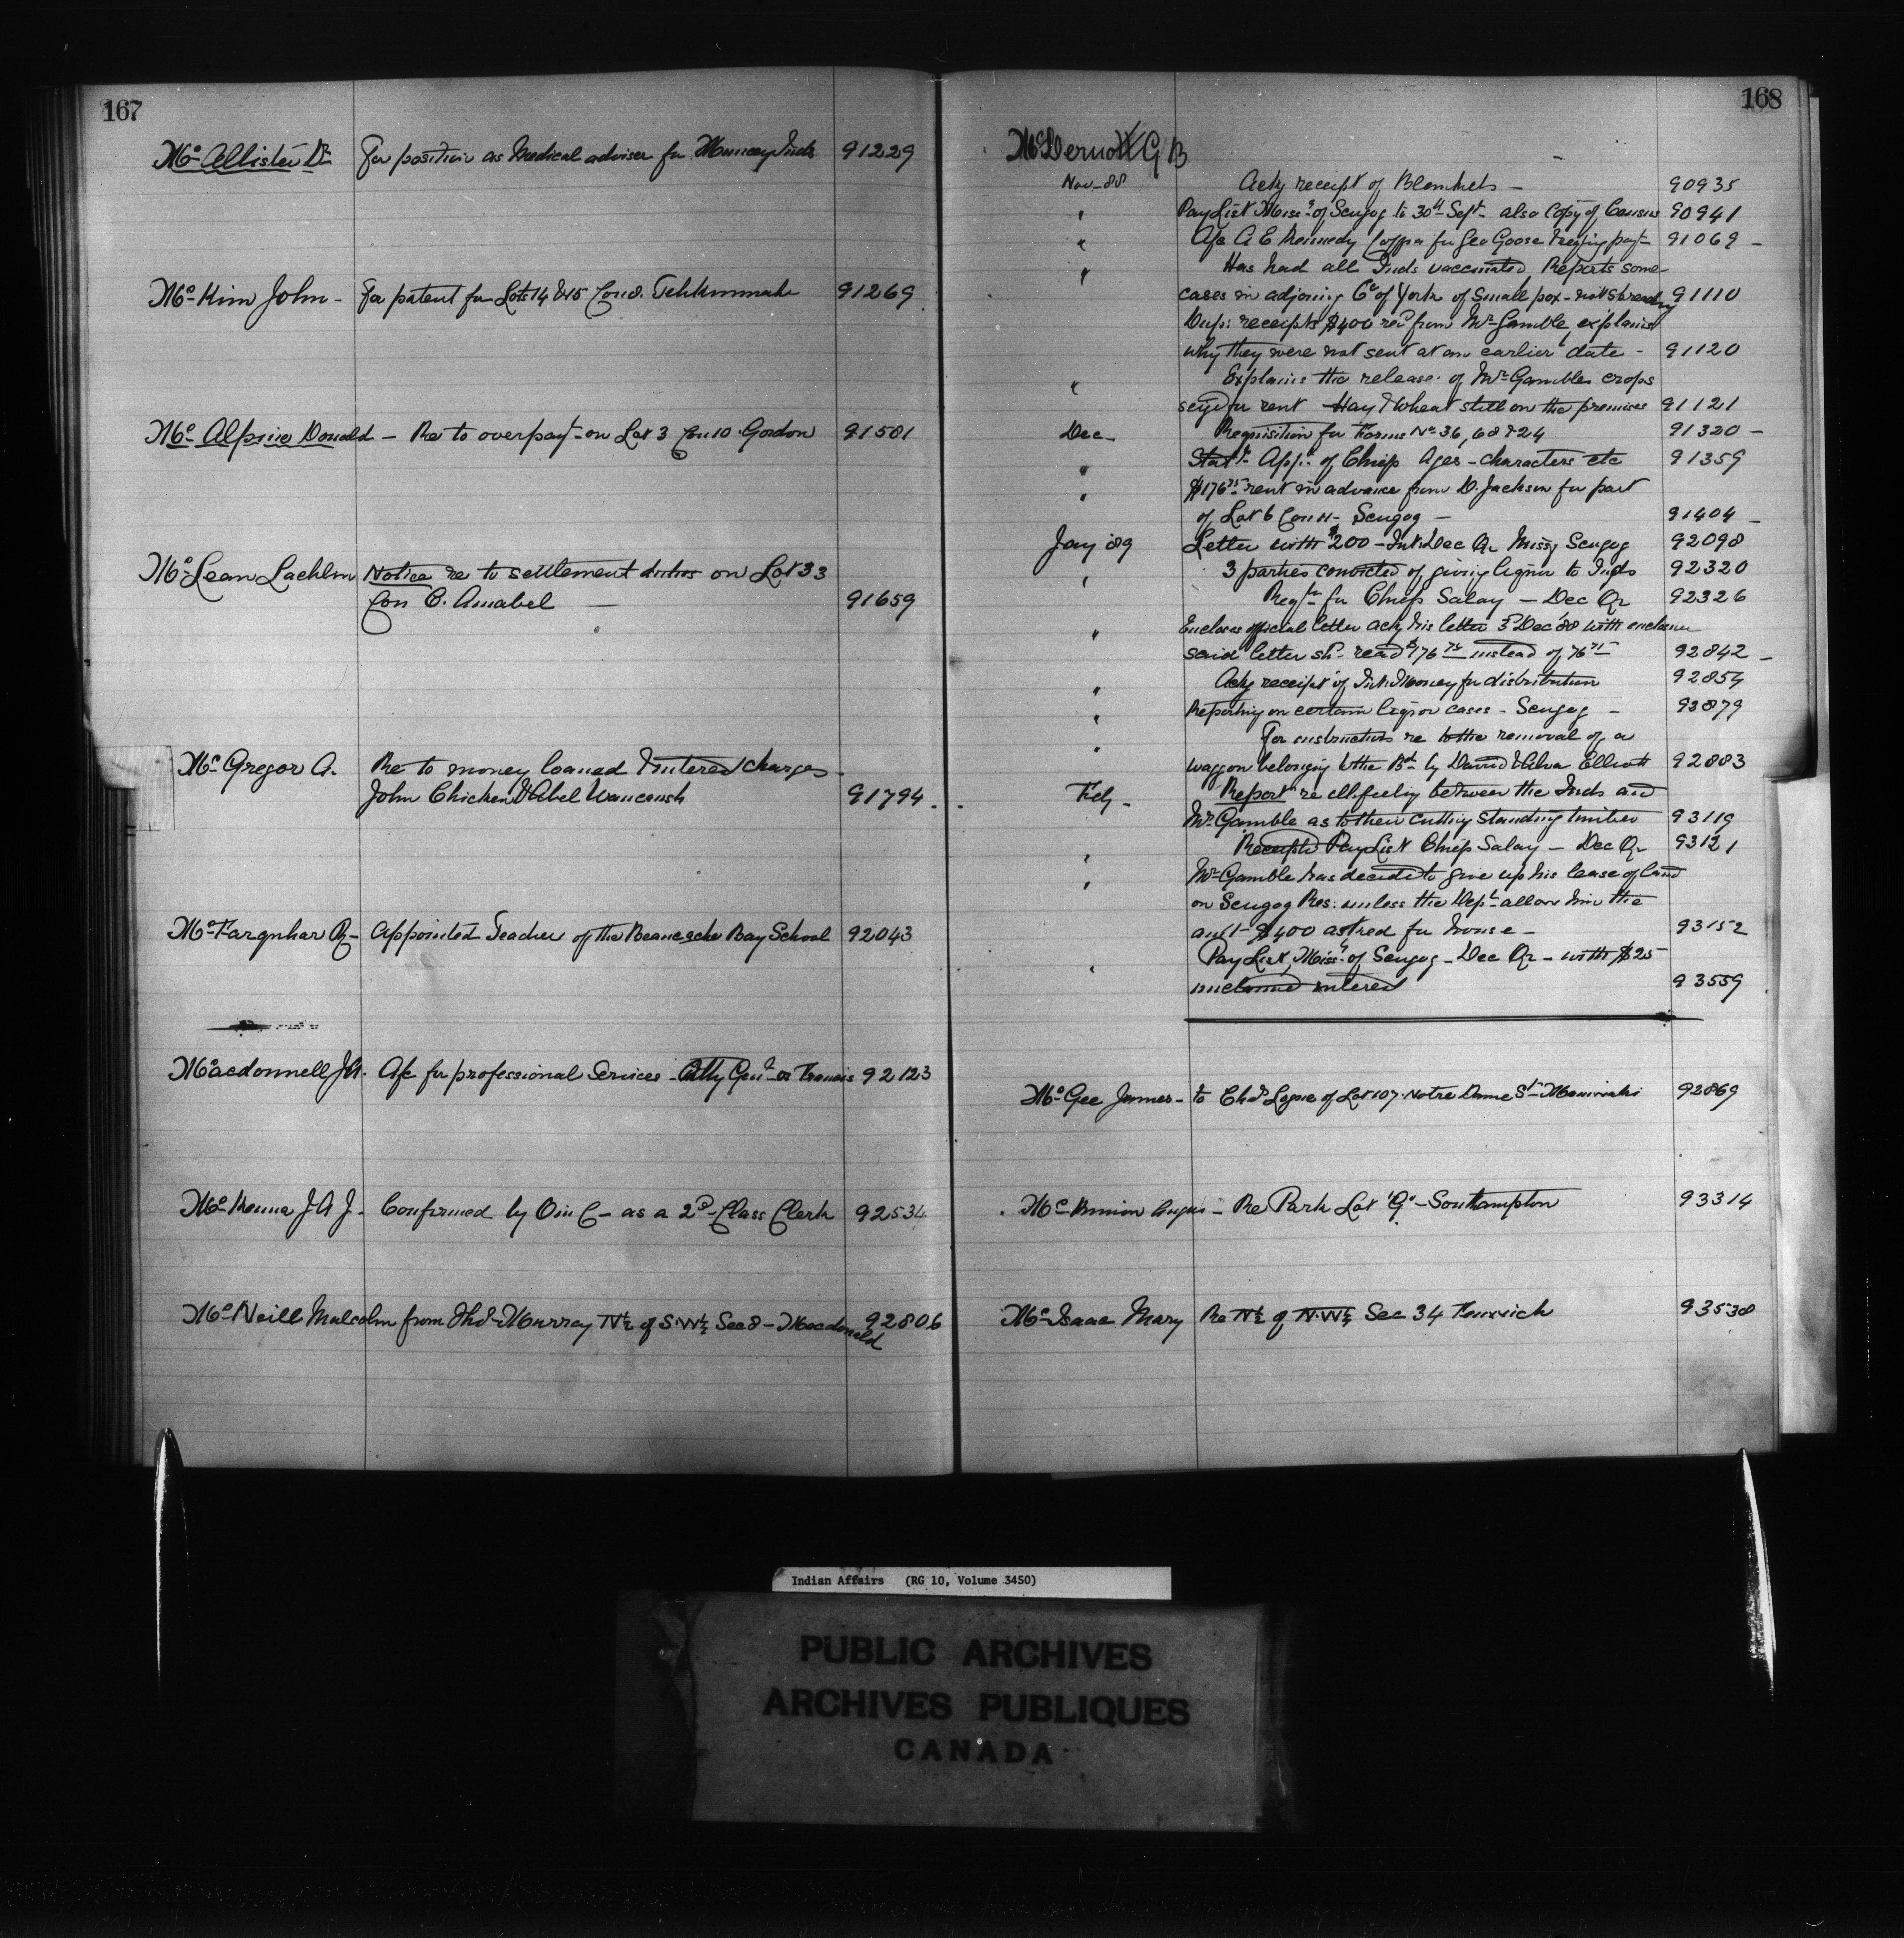 167
McAllister Dr For position as Medical adviser for Muncey Inds 91229
McKim John - For patent for Lots 14 & 15 Con 8. Tehkummah 91269
McAlpine Donald - Re to overpayt on Lot 3 Con 10 Gordon 91581
McLean Lachlin Notice re to settlement duties on Lot 33
Con C. Amabel — 91659
McGregor A. Re to money loaned & interest charges -
John Chicken & Abel Waucaush 91794.
McFarquhar R - Appointed Teacher of the Bay School 92043
Macdonnell J.A. A/c for professional Services - Atty Genl vs Francis 92123
McKenna J A J. Confirmed by O in C - as a 2nd Class Clerk 92534
McNeill Malcolm from Thos Murray N½ of S.W¼ Sec 8 - Macdonald 92806
168
McDermott G B
Nov - 88 Ackg receipt of Blankets - 90935
" Pay List Missrs of Scugog to 30th Sept - also Copy of Census 90941
" A/c A E Kennedy for Geo Goose payt - 91069 -
" Has had all Inds vaccinated, Reports some
cases in adjoing Co of York of Small pox - not spreading 91110
Dup: receipts $400 recd from Mr Gamble, explains
why they were not sent at an earlier date - 91120
" Explains the release of Mr Gambles crops
seized for rent Hay & Wheat still on the premises 91121
Dec - Requisition for Forms No 36, 68 & 24 91320 -
" Statt - App: of Chiefs Ages - characters etc 91359
" $176.75 rent in advance from D. Jackson for part
of Lot 6 Con 11 - Scugog - 91404 -
Jany '89 Letter with $200 - Int. Dec Qr Missg Scugog 92098
" 3 parties convicted of giving liquor to Inds 92320
Reqtn for Chiefs Salary - Dec Qr 92326
" Encloses official letter ackg his letter 3rd Dec '88 with enclosure
said letter shd read $176.75 instead of 76.75 92842 -
" Ackg receipt of Int. Money for distribution 92854
" Reporting on certain liquor cases - Scugog - 92879
" For instructions re to the removal of a
waggon belonging to the Bd by David & Elliott 92883
Feby - Report re ill-feeling between the Inds and
Mr Gamble as to their cutting standing timber 93119
" Receipted Pay List Chiefs Salary - Dec Qr 93121
" Mr Gamble has decided to give up his lease of land
on Scugog Res: unless the Dept allow him the
amt - $400 asked for house - 93152
" Pay List, Missrs of Scugog - Dec Qr - with $25
unclaimed interest 93559
McGee James - to Chas Logue of Lot 107 Notre Dame St - Maniwaki 92869
McKinnon Angus - Re Park Lot 'G' - Southampton 93314
McIsaac Mary Re N½ of N.W¼ Sec 34 Fenwick 93538
Indian Affairs (RG 10, Volume 3450)
PUBLIC ARCHIVES
ARCHIVES PUBLIQUES
CANADA